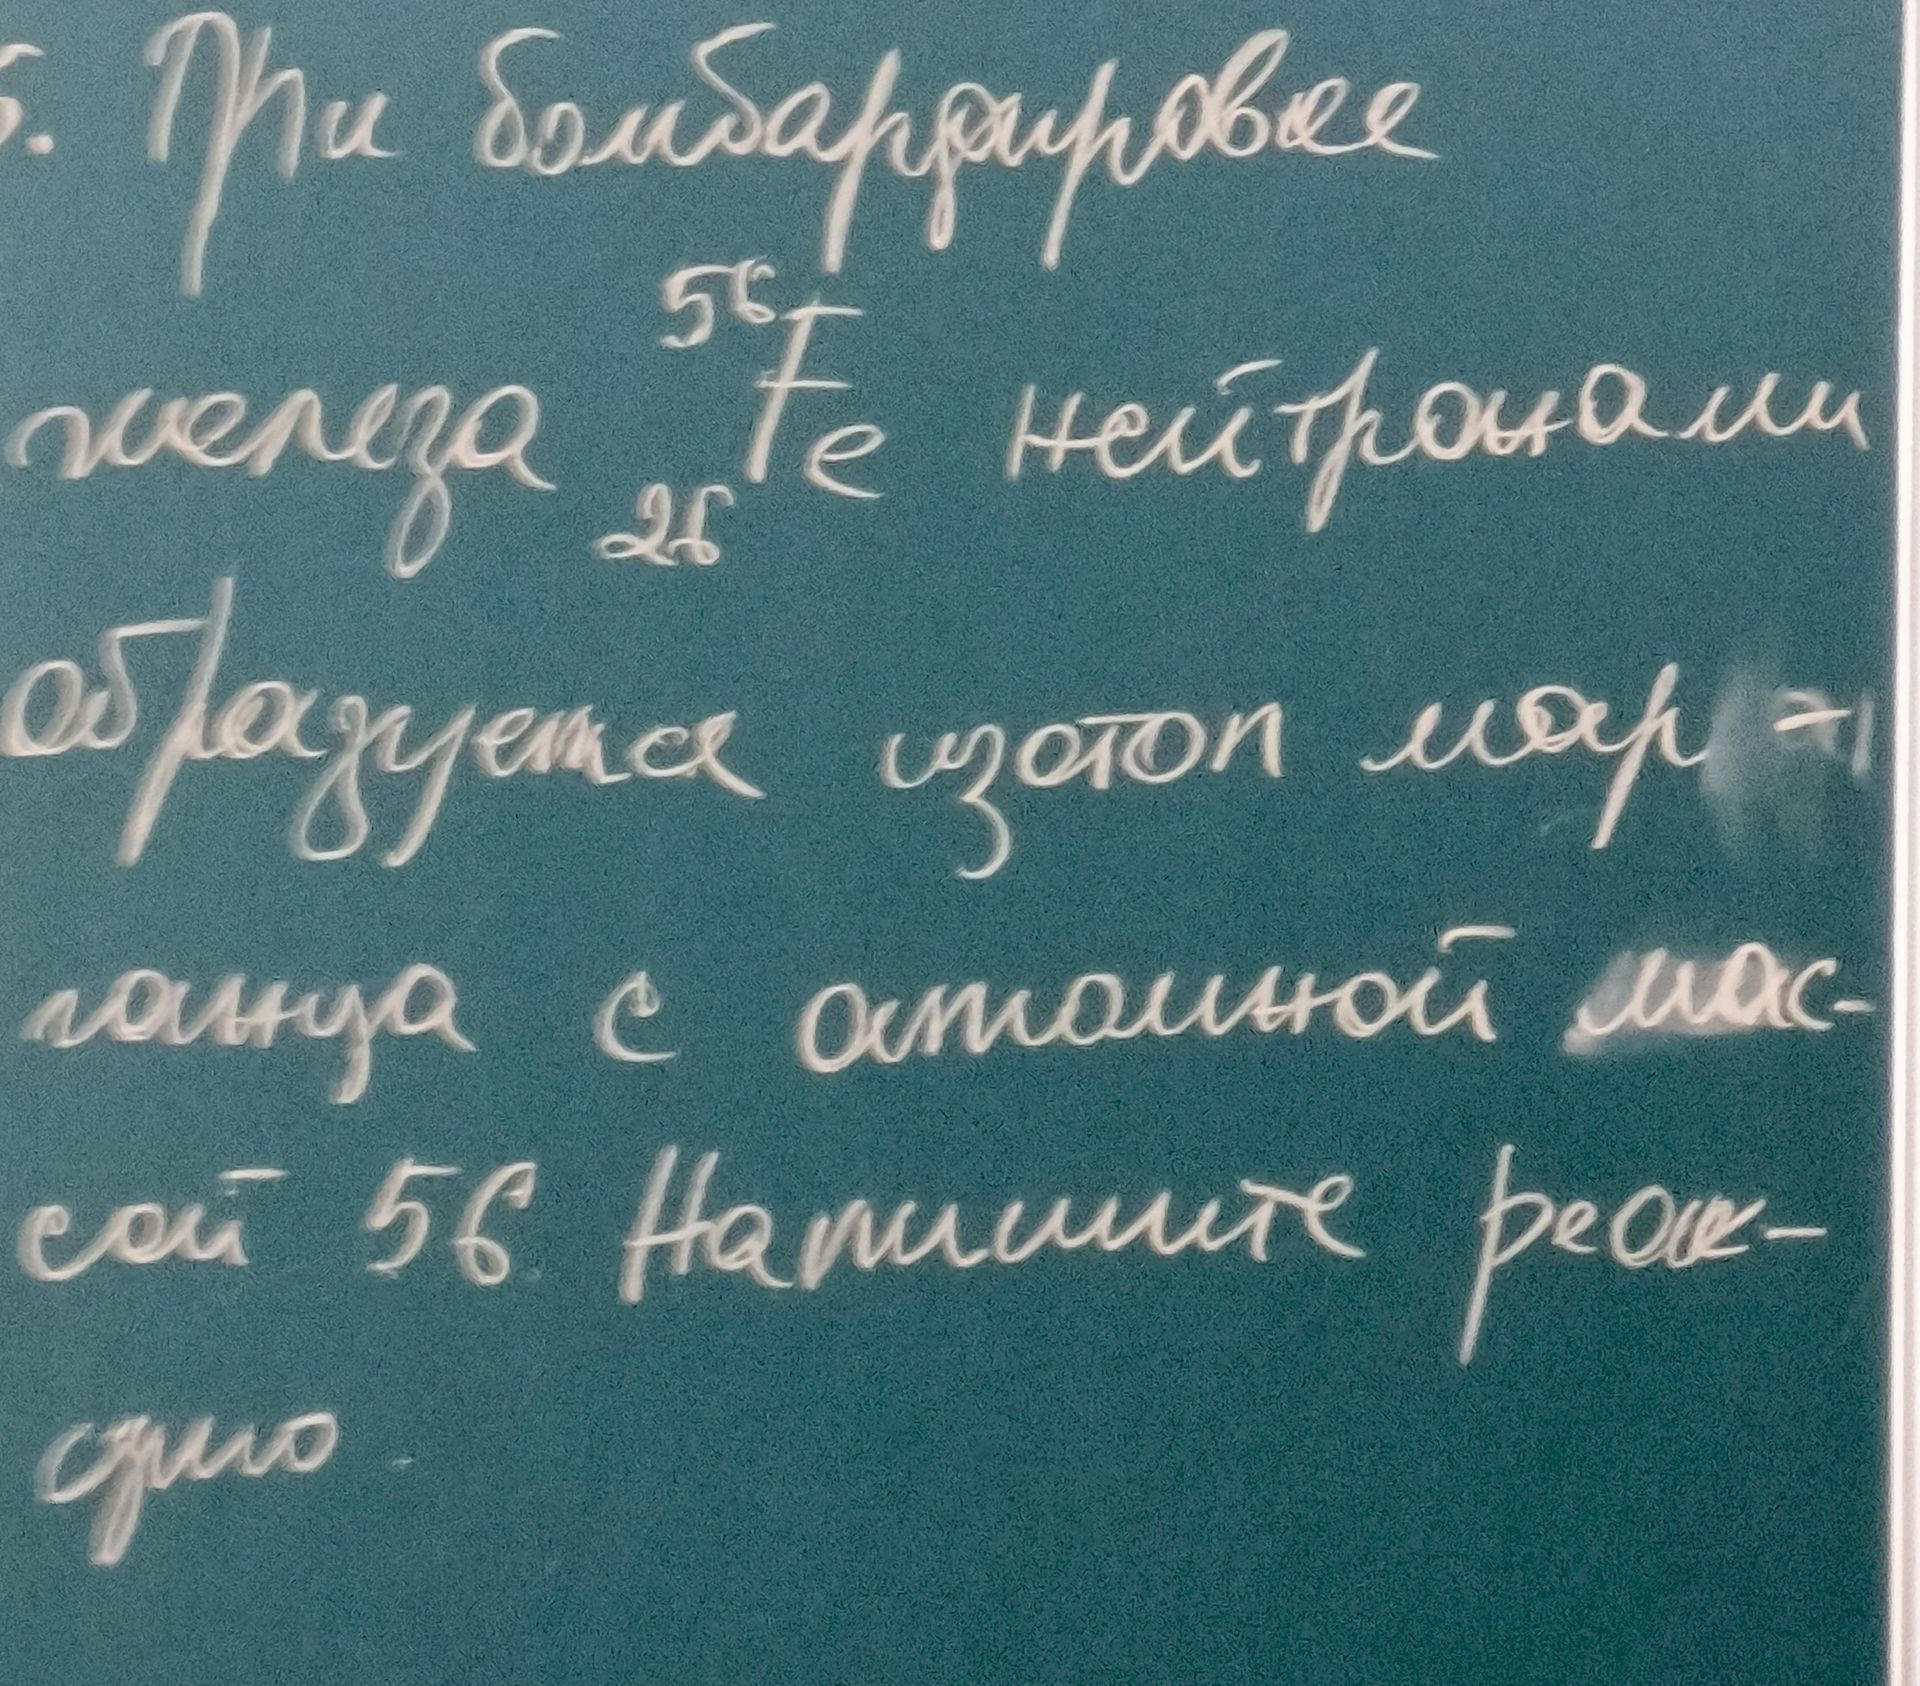 5. При бомбардировке
железа ⁵⁶₂₆Fe нейтронами
образуется изотоп мар-
ганца с атомной мас-
сой 56. Напишите реак-
цию.